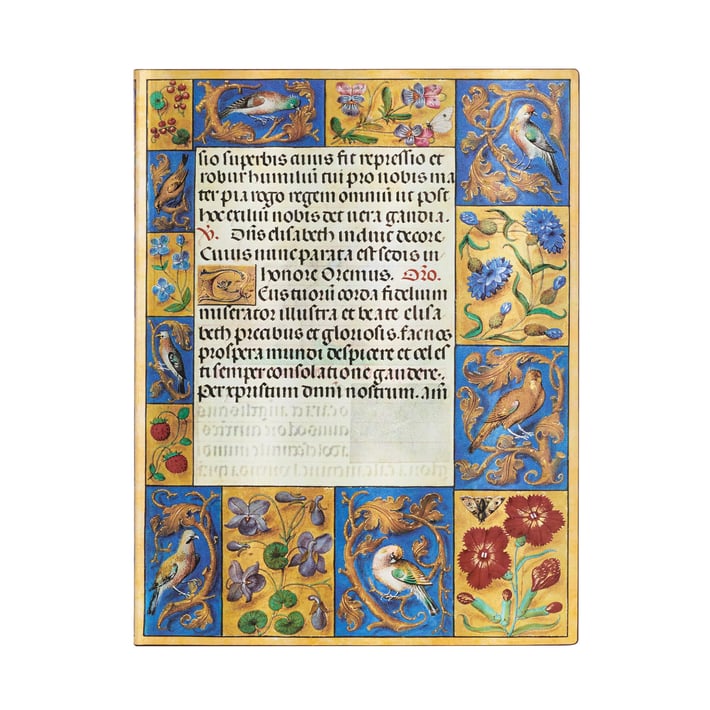 sio superbis cuius fit repressio et
robur humiliū cui pro nobis ma
ter pia rogo regem omniū ut post
hoc exiliū nobis det vera gaudia.
V. Dñs elisabeth induc decore
Cuius nunc parata est sedis in
honore Oremus. Orõ.
Deus tuorū corda fidelium
miserator illustra et beate elisa
beth precibus et gloriosis. fac nos
prospera mundi despicere et celes
ti semper consolatione gaudere.
Per xpristum dñm nostrum. Am̄